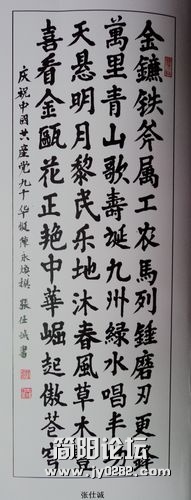 金鐮鉄斧属工农馬列錘磨刃更鋒
萬里青山歌壽誕九州綠水唱丰
天悬明月黎民乐地沐春風草木
喜看金甌花正艳中華崛起傲苍穹
庆祝中國共產党九十华诞陳永燦撰 張仕诚書
张仕诚
简明论坛
www.jy0282.com